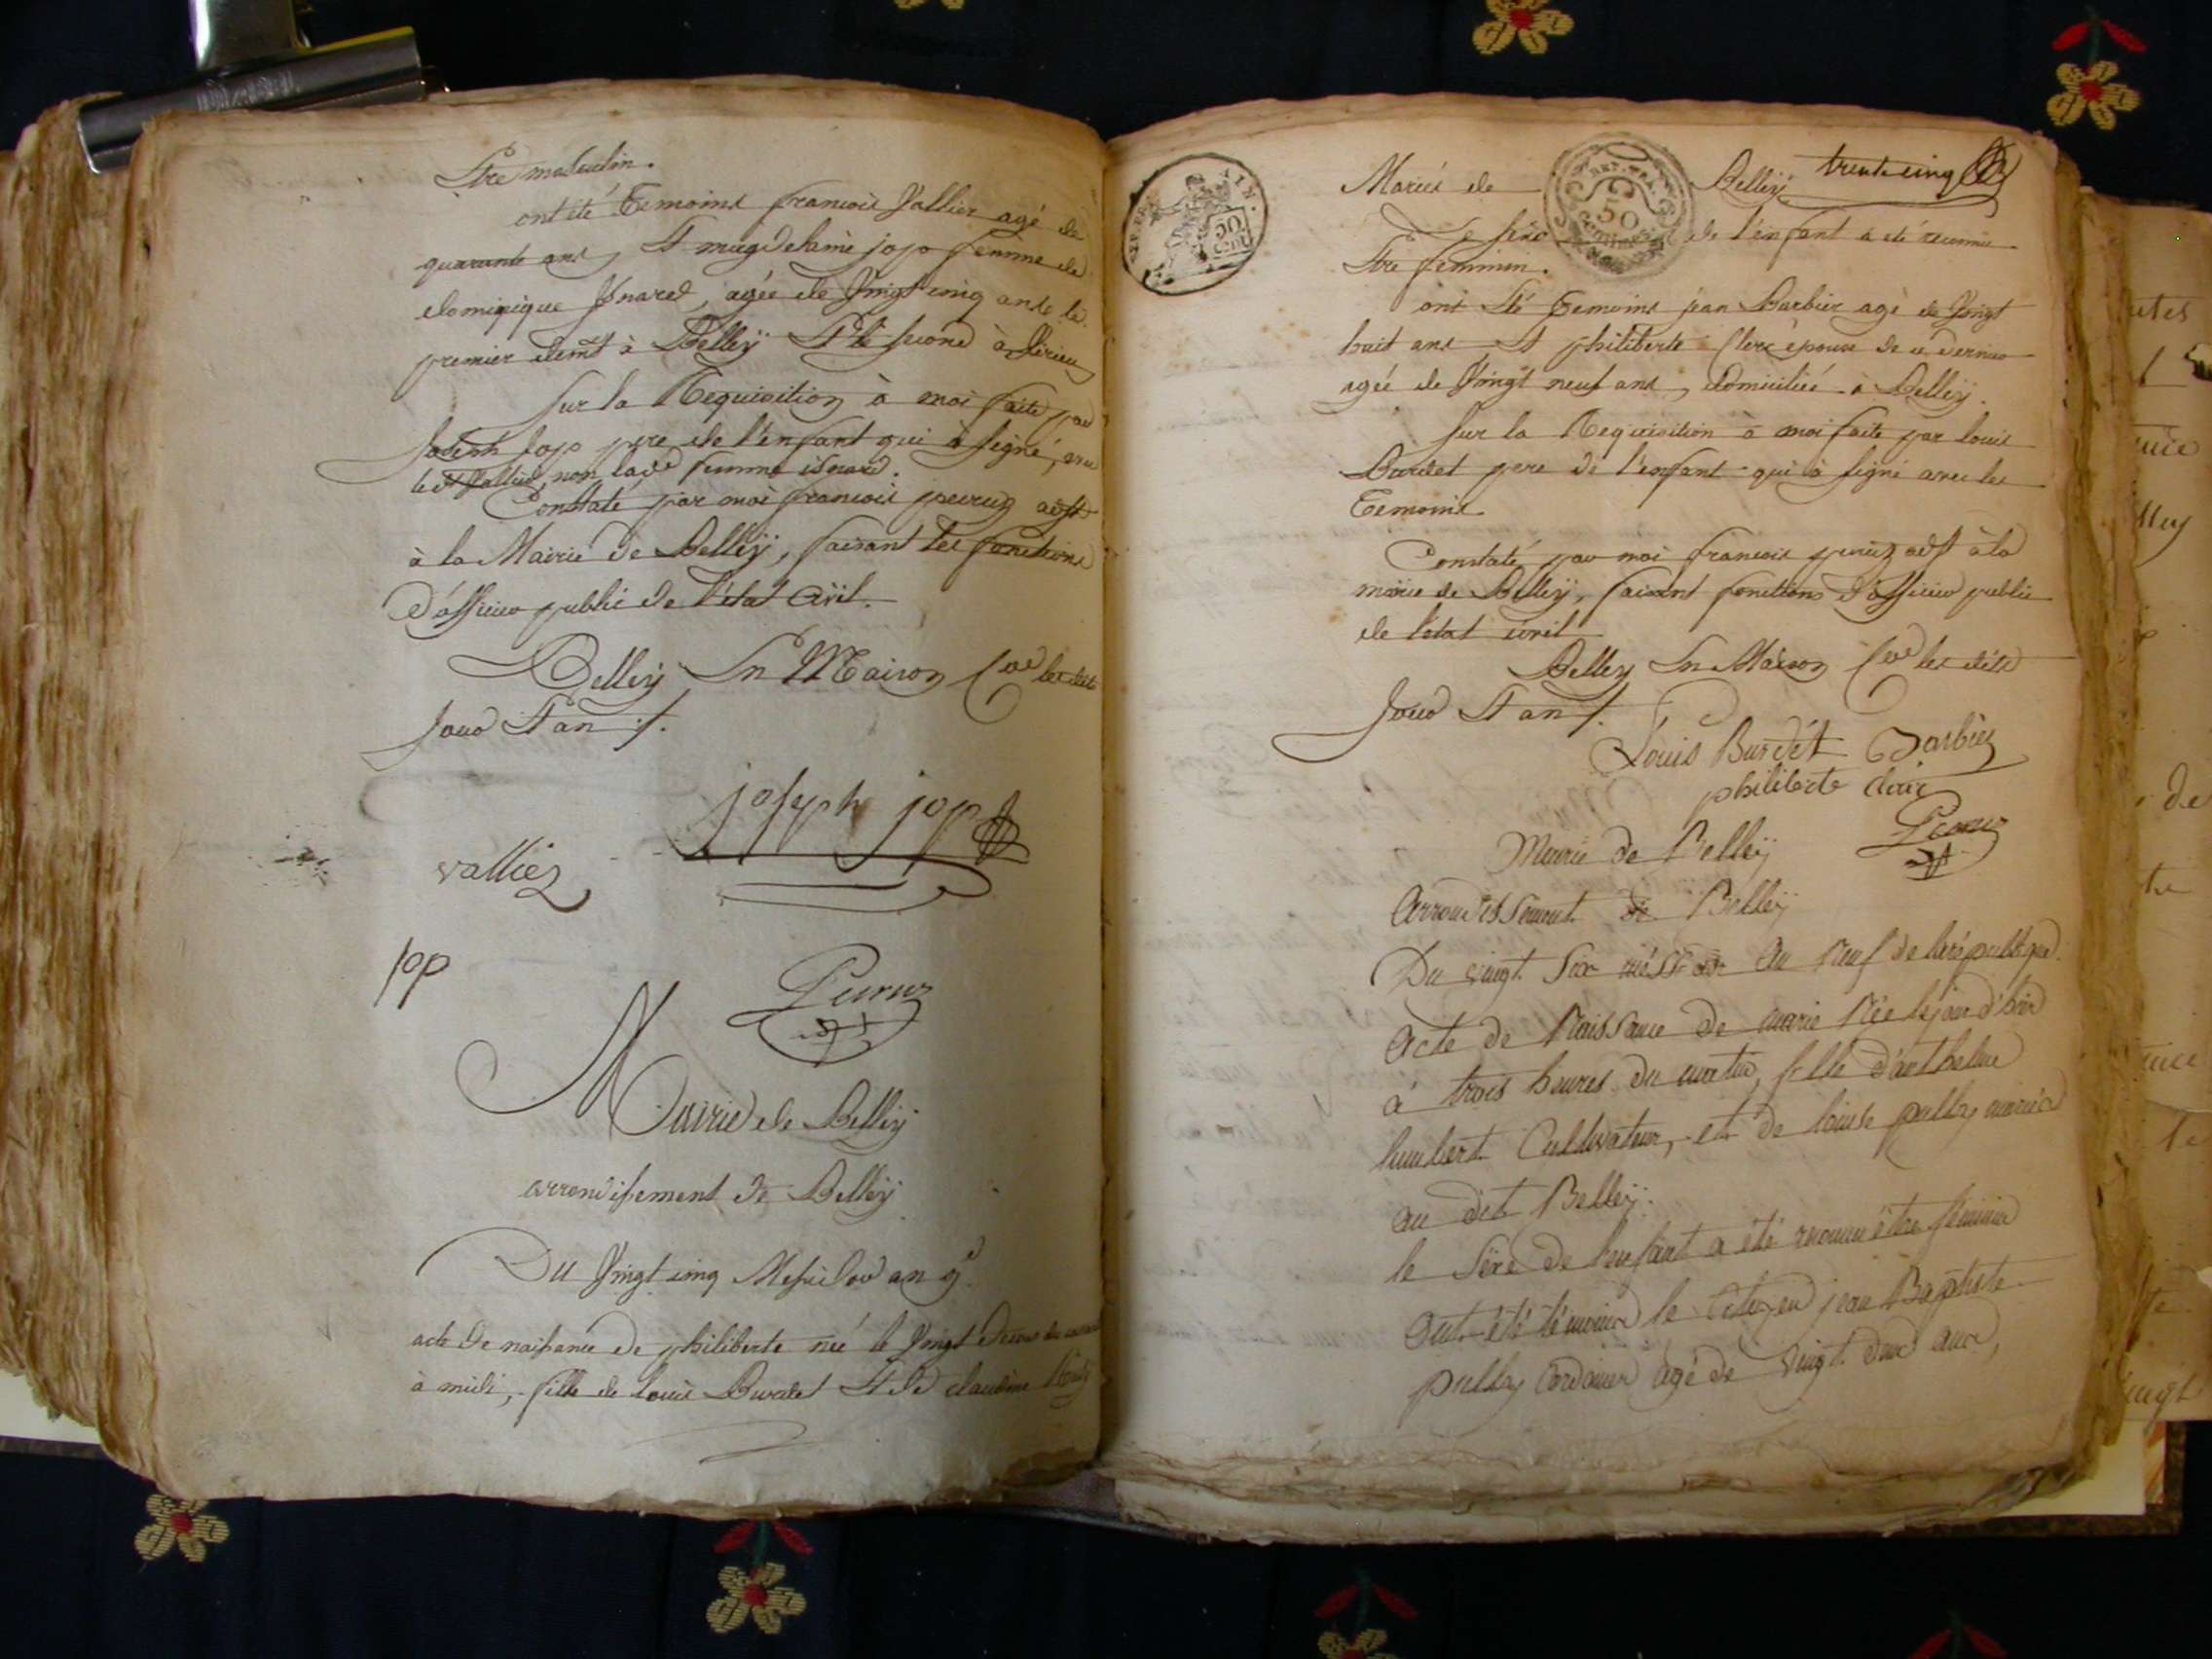 Etre masculin.
ont été Temoins francois Vallier agé de
quarante ans, Et magdelaine jopo femme de
dominique Isnard, agée de Vingt cinq ans le
premier demt à Belleÿ Et la seconde à
sur la Requisition à moi faite par
Joseph Jopo pere de l'enfant qui à signé, avec
led Vallier, non lade femme isnard.
Constaté par moi francois peuruz adjt
à la Mairie de Belleÿ, faisant les fonctions
D'officier public de l'état civil.
Belleÿ En Maison Coe les dits
Jour Et an /.
joseph jop
valliez
jop
Peuruz
Mairie de Belleÿ
arrondissement de Belleÿ
Du Vingt cinq Messidor an 9e
acte De naissance de philiberte née le Vingt Deux du courant
à midi, fille de Louis Burdet Et de claudine
Mariés de Belleÿ trente cinq
Le sexe de l'enfant à été reconnu
Etre feminin.
ont Eté Temoins jean Barbier agé de Vingt
huit ans Et philiberte Clerc épouse de ce dernier
agée de Vingt neuf ans, domiciliée à Belleÿ.
sur la Requisition à moi faite par louis
Burdet pere de l'enfant qui à signé avec les
Temoins.
Constaté par moi francois peuruz adjt à la
mairie de Belleÿ, faisant fonctions D'officier public
de l'état civil
Belleÿ En Maison Coe les dits
Jour Et an /.
Louis Burdét Barbiez
philiberte clair
Peuruz
Mairie de Belleÿ
Arrondissement de Belleÿ
Du vingt six méssidor an neuf de la république.
Acte de Naissance de marie Née le jour d'hier
à trois heures du matin, fille d'anthelme
humbert Cultivateur, et de louise pullay mariés
au dit Belleÿ.
le Séxe de l'enfant a été reconnu être féminin
Ont été témoins le Citoyen jean Baptiste
pullay Cordonier agé de vingt deux ans,
50
CENT
50
CENTIMES